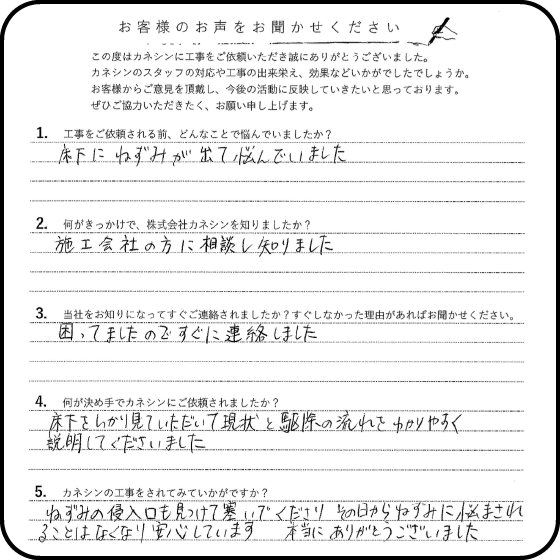 お客様のお声をお聞かせください
この度はカネシンに工事をご依頼いただき誠にありがとうございました。
カネシンのスタッフの対応や工事の出来栄え、効果などいかがでしたでしょうか。
お客様からご意見を頂戴し、今後の活動に反映していきたいと思っております。
ぜひご協力いただきたく、お願い申し上げます。
1. 工事をご依頼される前、どんなことで悩んでいましたか?
床下に ねずみが 出て悩んでいました
2. 何がきっかけで、株式会社カネシンを知りましたか?
施工会社の方に相談し知りました
3. 当社をお知りになってすぐご連絡されましたか?すぐしなかった理由があればお聞かせください。
困ってましたのですぐに連絡しました
4. 何が決め手でカネシンにご依頼されましたか?
床下をしっかり見ていただいて現状と駆除の流れをわかりやすく
説明してくださいました
5. カネシンの工事をされてみていかがですか?
ねずみの侵入口も見つけて塞いでくださり その日からねずみに悩まされ
ることはなくなり安心しています 本当にありがとうございました